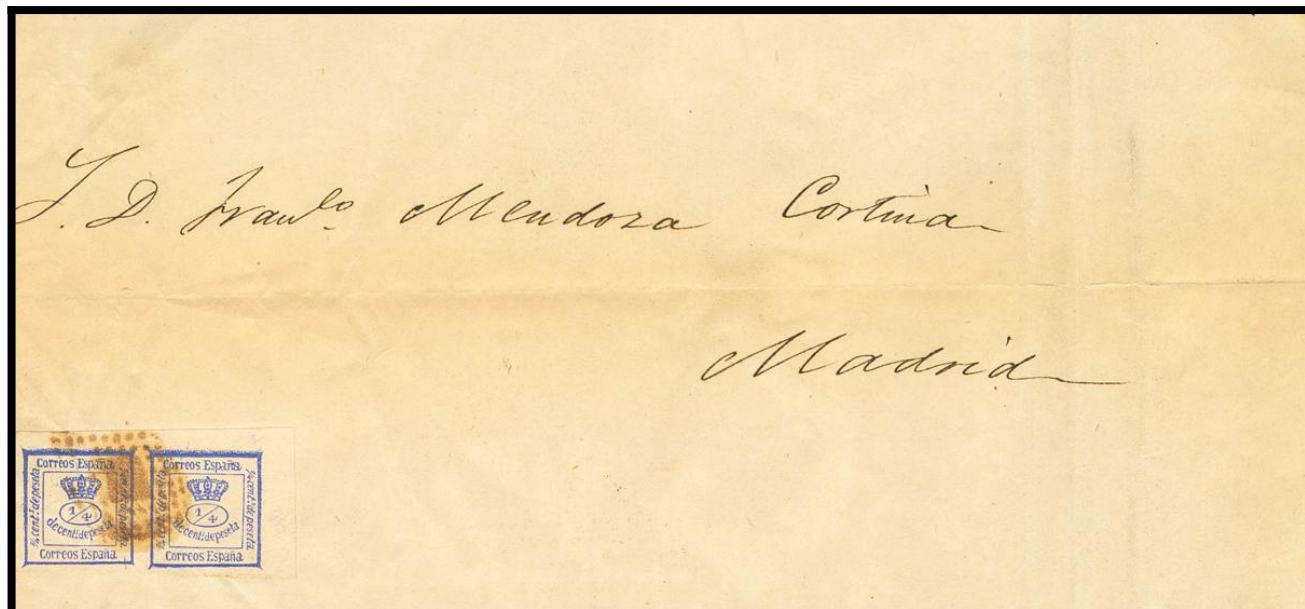 S. D. Franco. Mendoza Cortina
Madrid
Correos España
¼ cent.ˢ de peseta
¼ cent.ˢ de peseta
1/4
de cent.ˢ de peseta
Correos España
Correos España
¼ cent.ˢ de peseta
¼ cent.ˢ de peseta
1/4
de cent.ˢ de peseta
Correos España